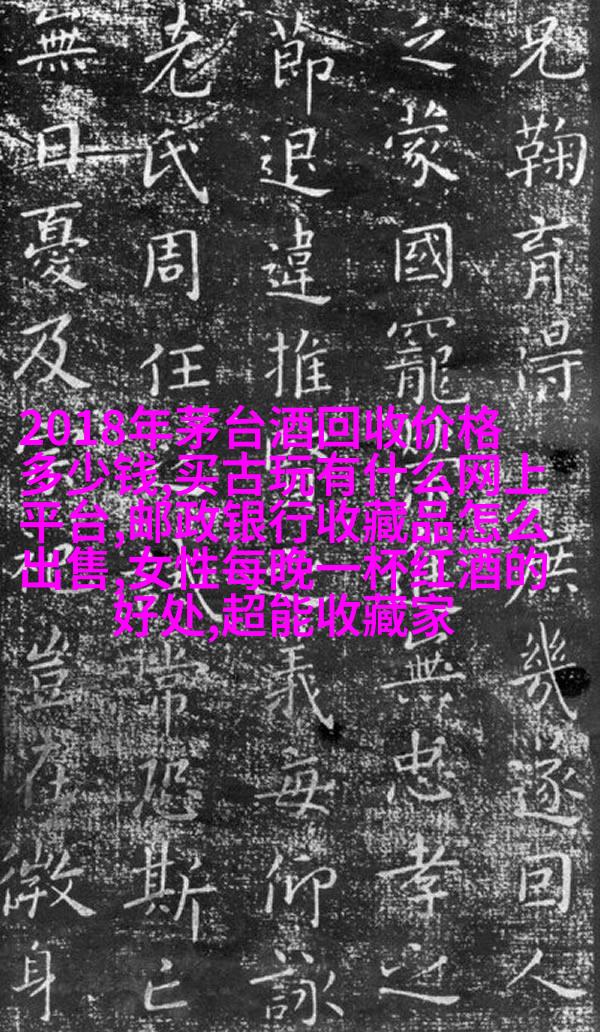 兄鞠育得庶幾遂回人
之蒙國寵無忠孝之
節退違推義每仰詠
老氏周任常恐斯亡
無日憂及豈在微身
2018年茅台酒回收价格
多少钱,买古玩有什么网上
平台,邮政银行收藏品怎么
出售,女性每晚一杯红酒的
好处,超能收藏家